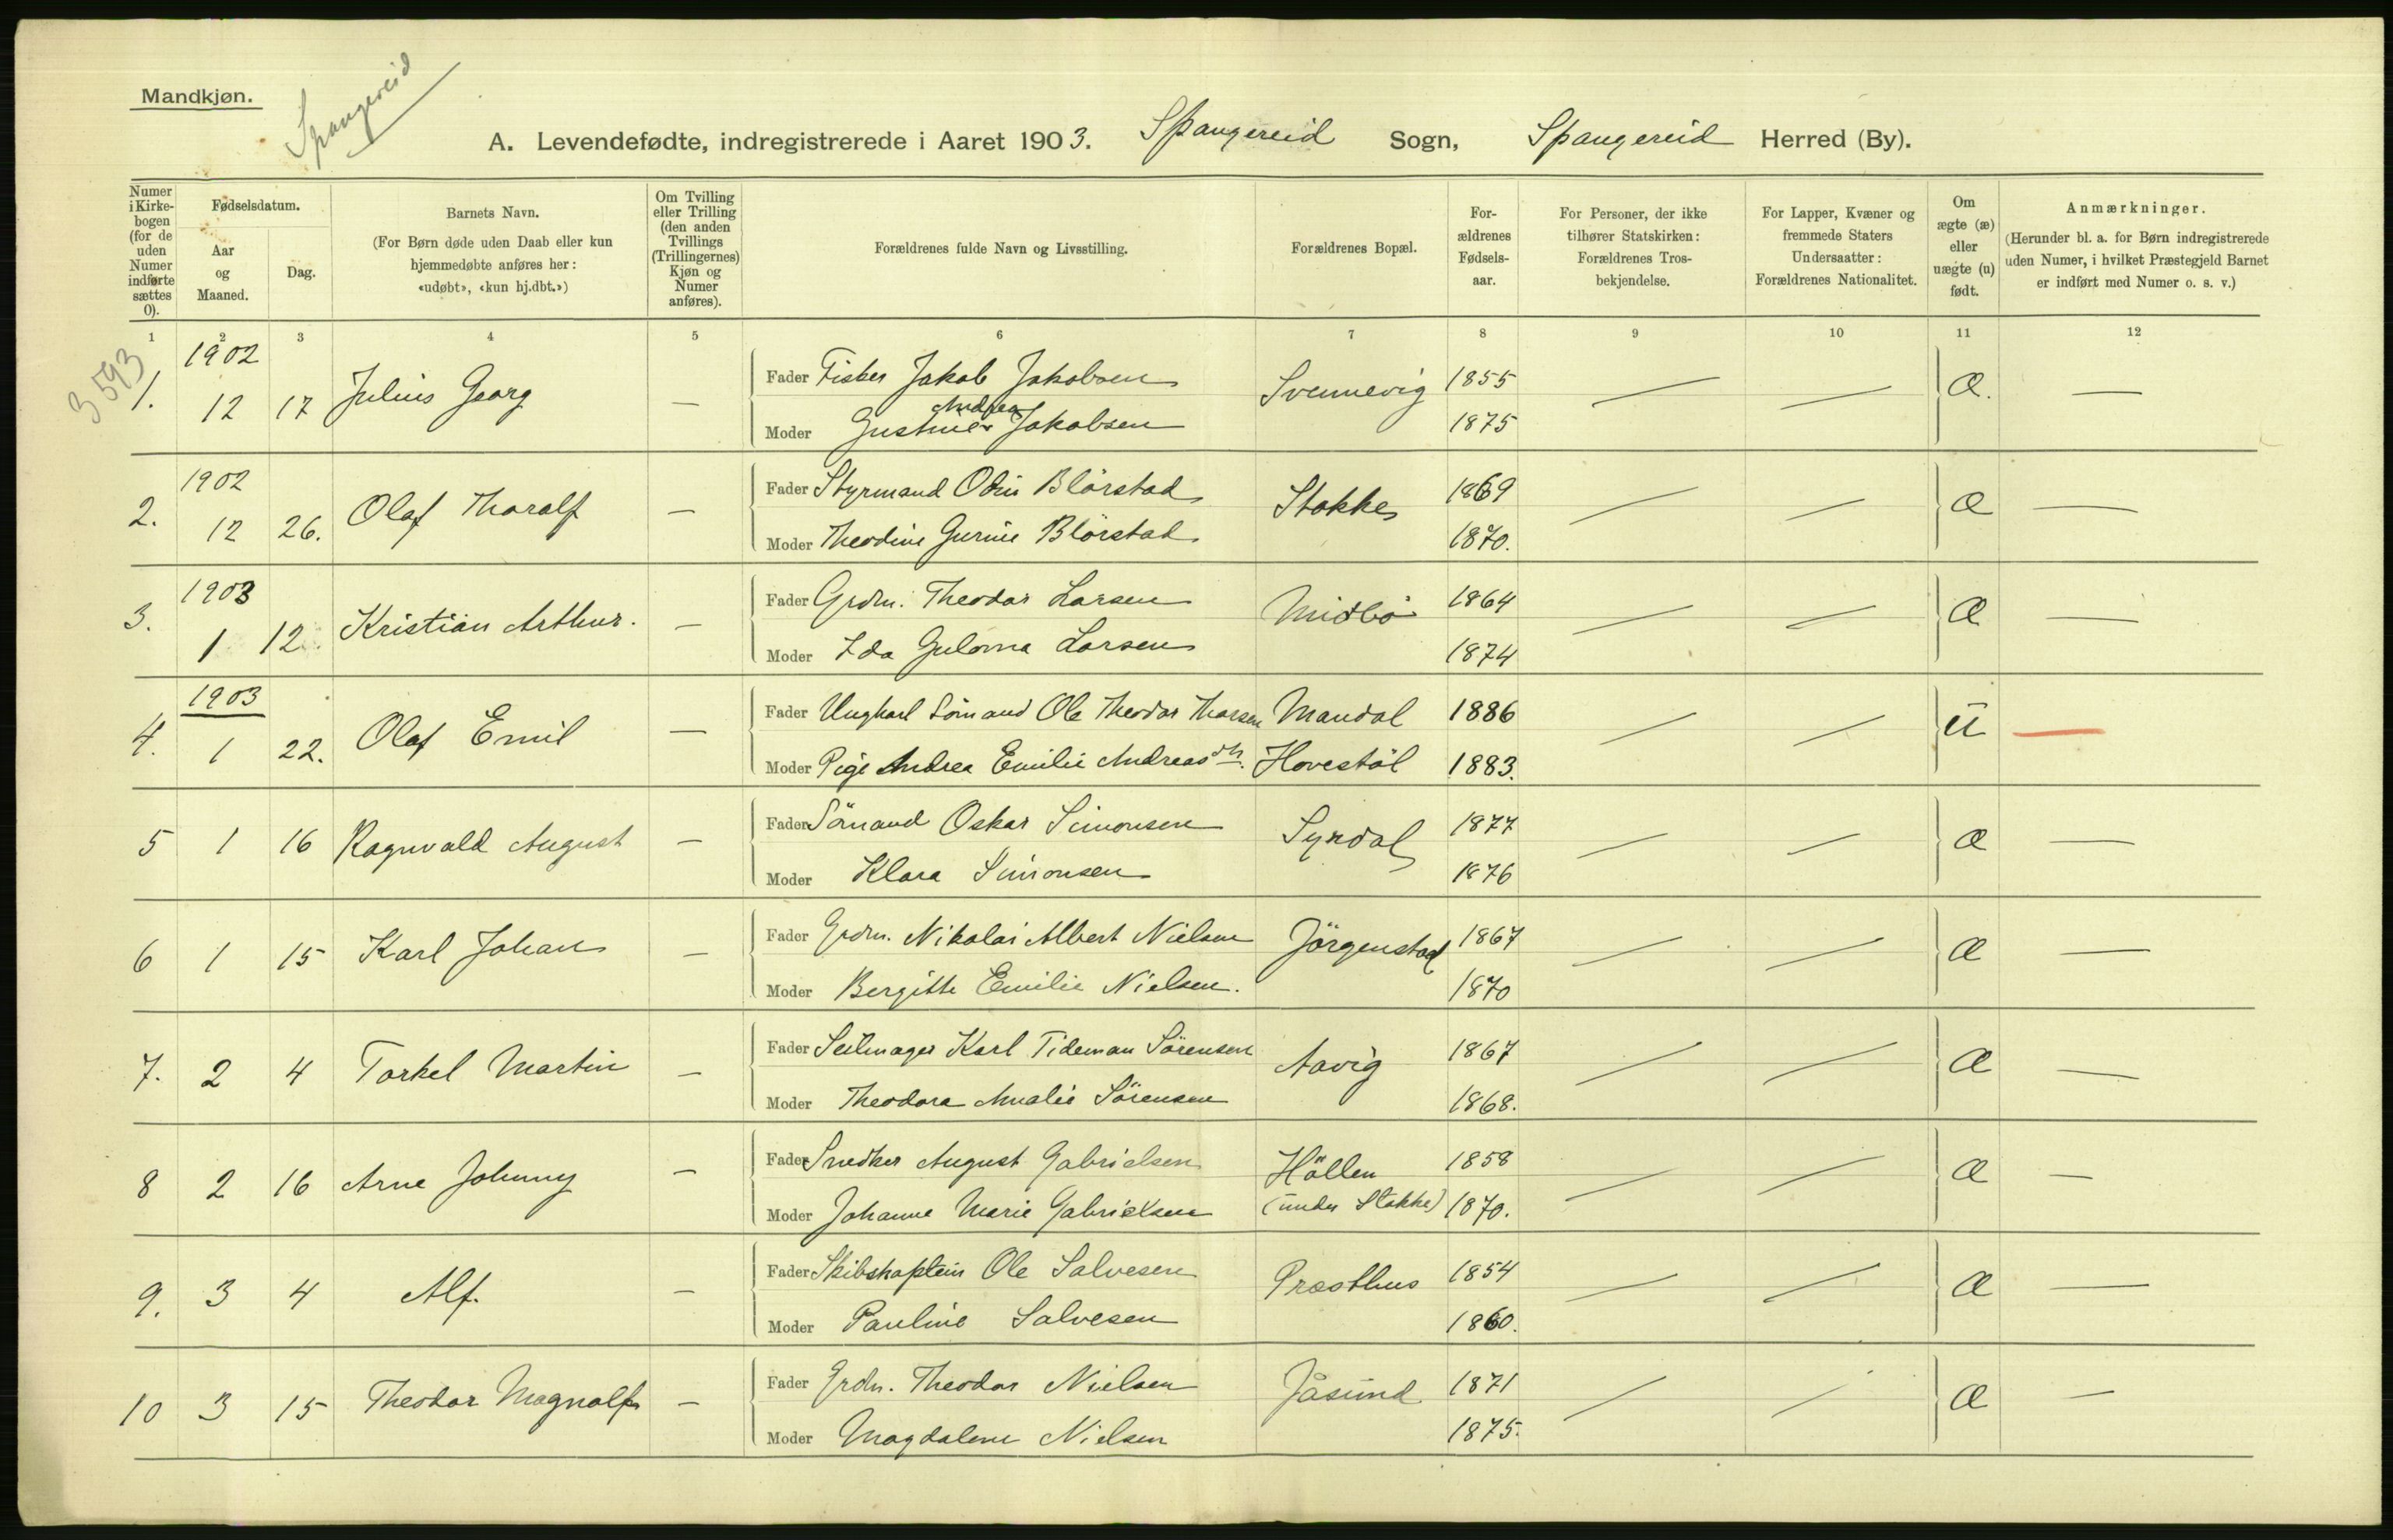 Mandkjøn.
Spangereid
A. Levendefødte, indregistrerede i Aaret 1903. Spangereid Sogn, Spangereid Herred (By).
Numer i Kirkebogen (for de uden Numer indførte sættes 0).
Fødselsdatum.
Aar og Maaned.
Dag.
Barnets Navn.
(For Børn døde uden Daab eller kun hjemmedøbte anføres her: «udøbt», «kun hj.dbt.»)
Om Tvilling eller Trilling (den anden Tvillings (Trillingernes) Kjøn og Numer anføres).
Forældrenes fulde Navn og Livsstilling.
Forældrenes Bopæl.
For-ældrenes Fødsels-aar.
For Personer, der ikke tilhører Statskirken: Forældrenes Tros-bekjendelse.
For Lapper, Kvæner og fremmede Staters Undersaatter: Forældrenes Nationalitet.
Om ægte (æ) eller uægte (u) født.
Anmærkninger.
(Herunder bl. a. for Børn indregistrerede uden Numer, i hvilket Præstegjeld Barnet er indført med Numer o. s. v.)
1 2 3 4 5 6 7 8 9 10 11 12
3593
1902
1. 12 17 Julius Georg — Fader Fisker Jakob Jakobsen Svennevig 1855 — — Æ. —
Andrea
Moder Gustine Jakobsen 1875
1902
2. 12 26. Olaf Thoralf — Fader Styrmand Odin Blörstad Stokke 1869 — — Æ —
Moder Theodine Gurine Blörstad 1870.
1903
3. 1 12. Kristian Arthur. — Fader Grdm. Theodor Larsen Midbö 1864 — — Æ —
Moder Ida Gulorna Larsen 1874
1903
4. 1 22. Olaf Emil — Fader Ungkarl Sömand Ole Theodor Thorsen Mandal 1886 — — ŭ —
Moder Pige Andrea Emilie Andreasdtr. Hovestöl 1883.
5 1 16 Ragnvald August — Fader Sömand Oskar Simonsen Syrdal 1877 — — Æ —
Moder Klara Simonsen 1876
6 1 15 Karl Johan — Fader Grdm. Nikolai Albert Nielsen Jörgenstad 1867 — — Æ —
Moder Bergitte Emilie Nielsen. 1870
7. 2 4 Torkel Martin — Fader Seilmager Karl Tideman Sörensen Aavig 1867 — — Æ —
Moder Theodora Amalie Sörensen 1868.
8 2 16 Arne Johnny — Fader Snedker August Gabrielsen Höllen 1858 — — Æ —
Moder Johanne Marie Gabrielsen (under Stokke) 1870.
9. 3 4 Alf. — Fader Skibskaptein Ole Salvesen Præsthus 1854 — — Æ —
Moder Pauline Salvesen 1860.
10 3 15 Theodor Magnolf — Fader Grdm. Theodor Nielsen Jåsund 1871 — — Æ —
Moder Magdalene Nielsen 1875.